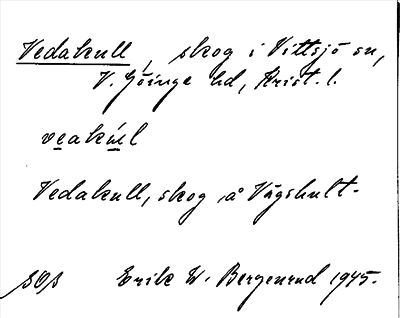 Vedakull, skog i Vittsjö sn,
V. Göinge hd, Krist. l.
veakúl
Vedakull, skog å Vågshult.
SOS Erik W. Bergenrud 1945.